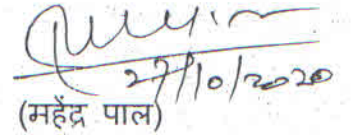 27/10/2020
(महेंद्र पाल)